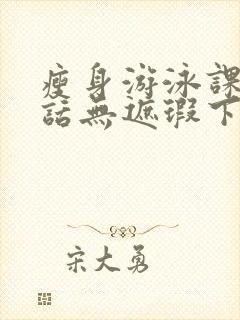 瘦身游泳課
話無遮瑕下
宋大勇